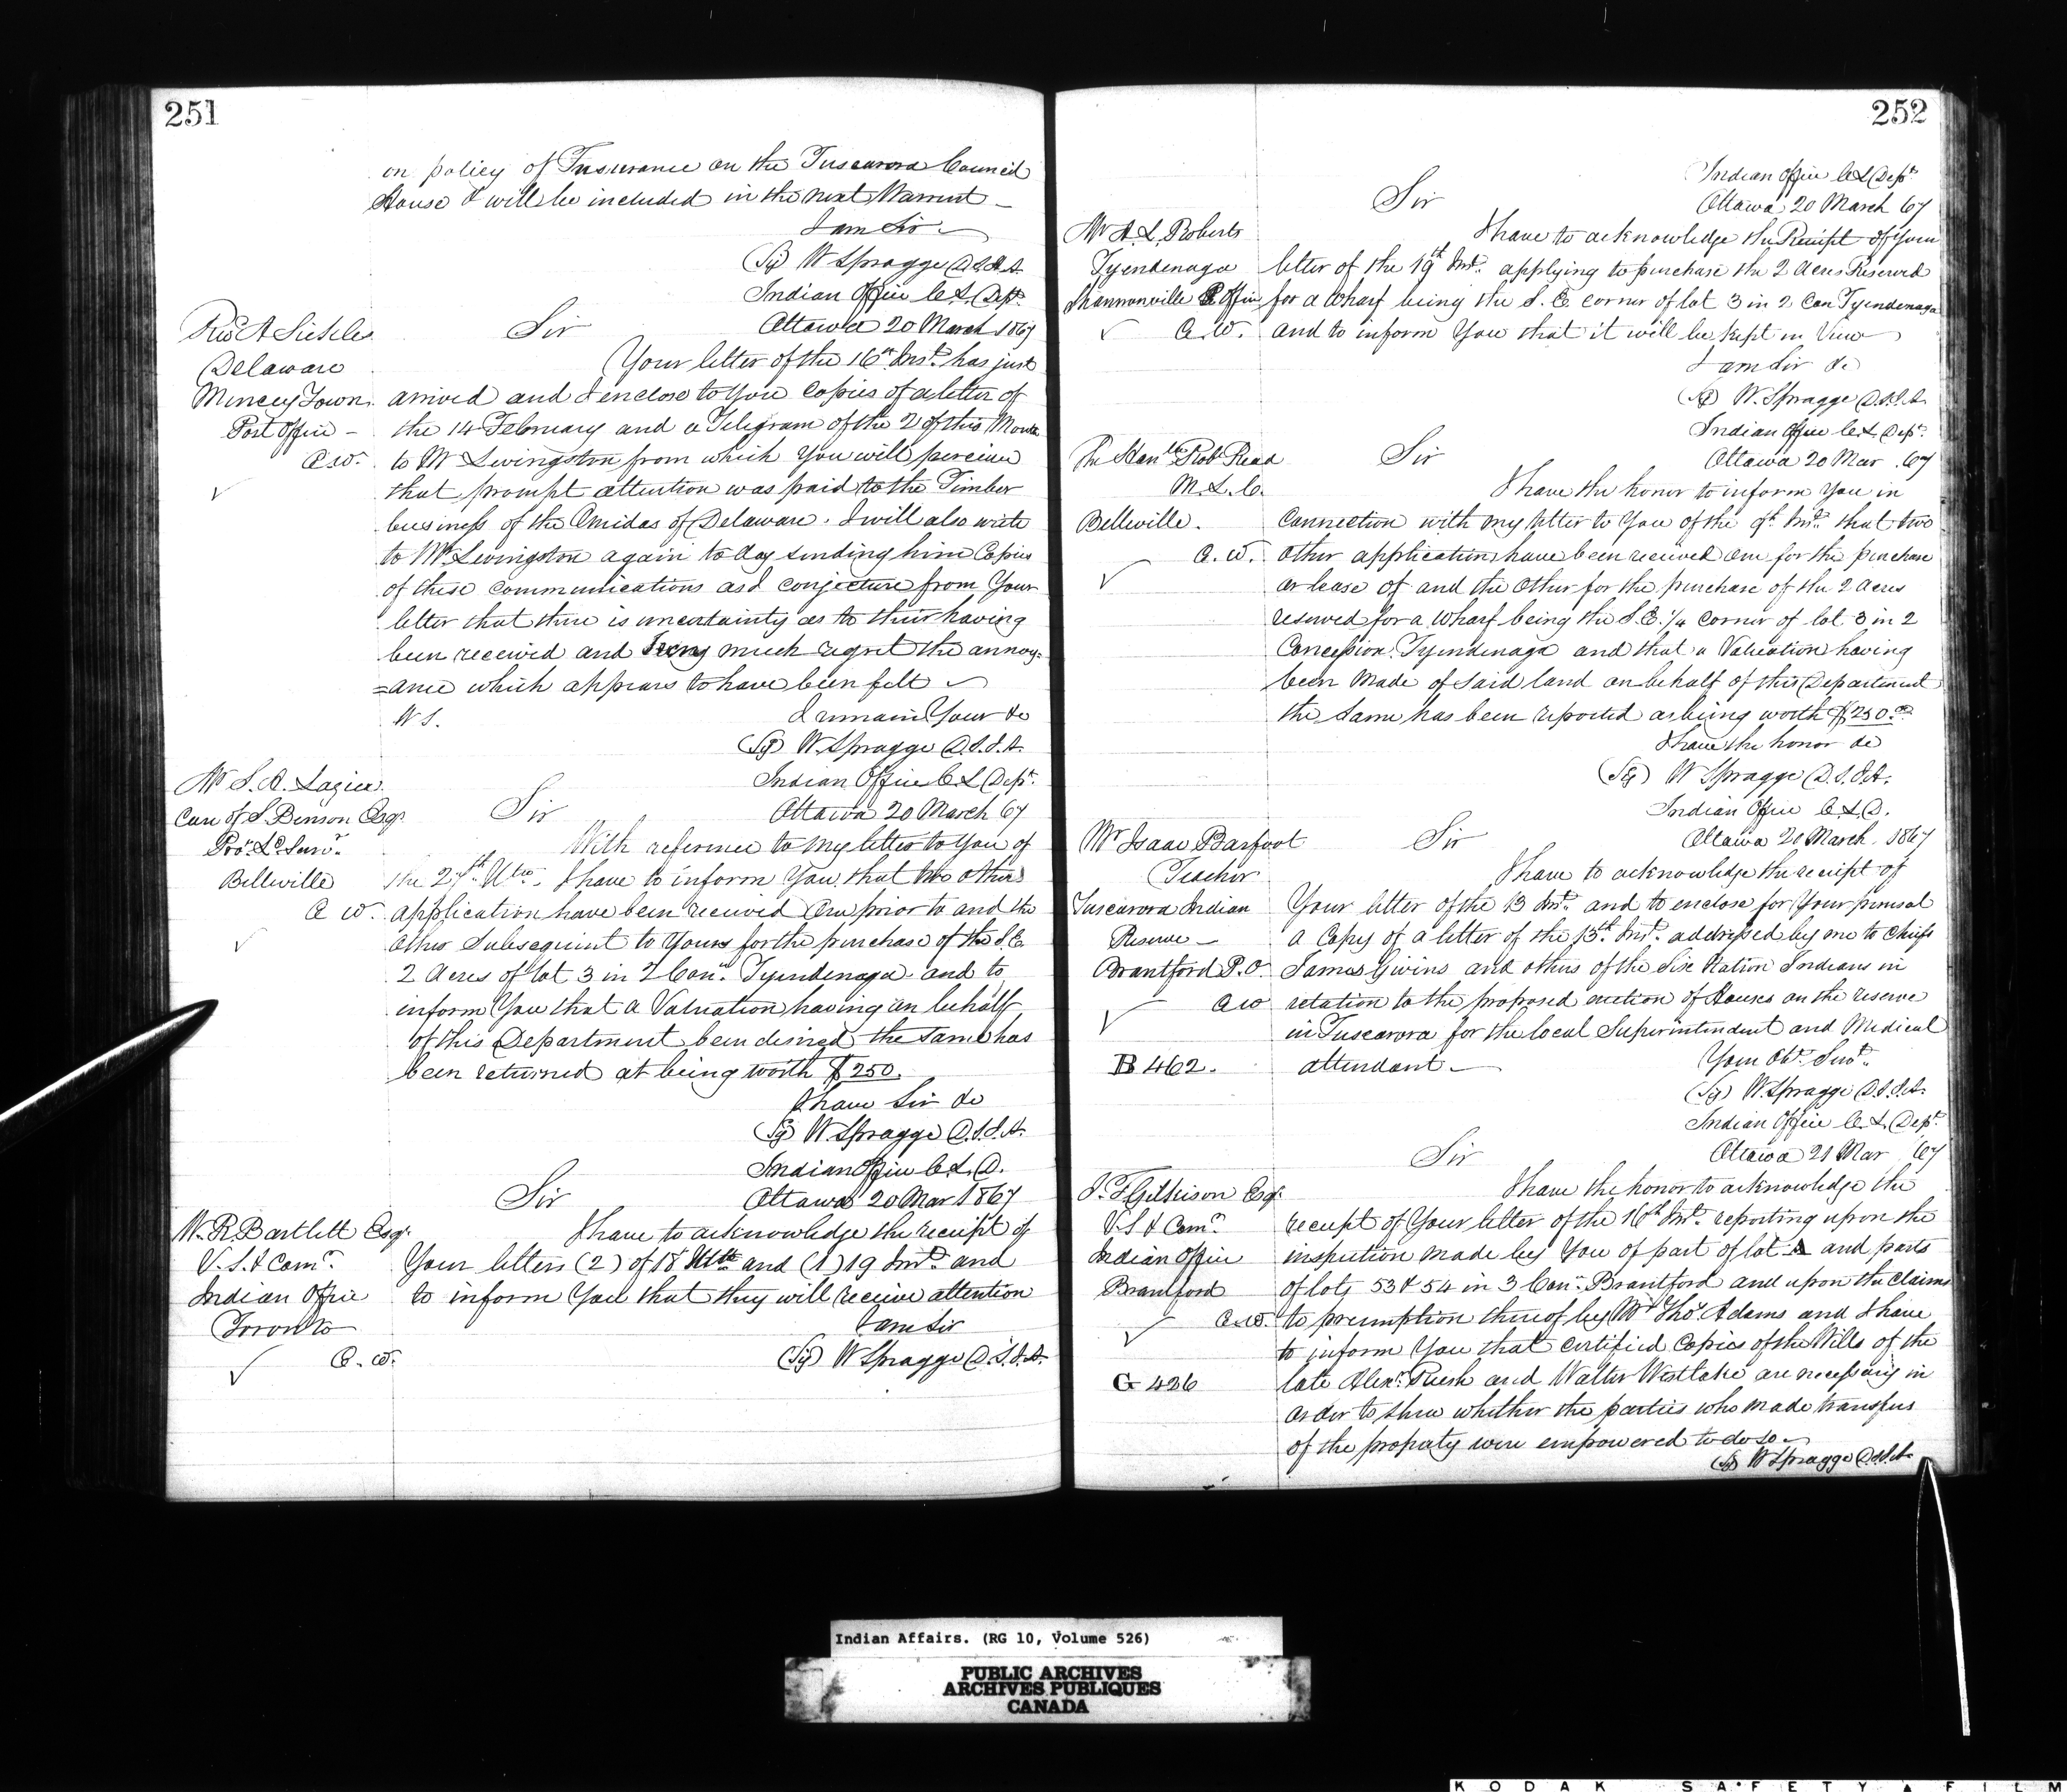 251
on policy of Insurance on the Tuscarora Council
House & will be included in the next Warrant —
I am Sir
(Sg) W Spragge D.S.I.A.
Indian Office C.L. Dept.
Ottawa 20 March 1867
Revd A Sickles
Delaware
Muncey Town
Post Office —
C.W.
Sir
Your letter of the 16th Inst. has just
arrived and I enclose to You Copies of a letter of
the 14 February and a Telegram of the 2 of this Month
to Mr Livingston from which You will perceive
that prompt attention was paid to the Timber
business of the Oneidas of Delaware. I will also write
to Mr Livingston again to day sending him Copies
of these communications as I conjecture from Your
letter that there is uncertainty as to their having
been received and very much regret the annoy=
=ance which appears to have been felt
W S.
I remain Your &c
(Sg) W. Spragge D.S.I.A.
Indian Office C L Dept.
Ottawa 20 March 67
Mr S. A. Lazier
Care of S. Benson Esqr.
Prov. Ld. Surv.
Belleville
C W.
Sir
With reference to my letter to You of
the 27th Ulto. I have to inform You that two others
application have been received One prior to and the
other Subsequent to Yours for the purchase of the S.E.
2 Acres of lot 3 in 2 Con. Tyendenaga and to
inform You that a Valuation having on behalf
of this Department been desired the same has
been returned at being worth $250.
I have Sir &c
(Sg) W. Spragge D.S.I.A.
Indian Office C.L.D.
Ottawa 20 Mar 1867
W. R. Bartlett Esqr.
V.S. & Comr.
Indian Office
Toronto
C. W.
Sir
I have to acknowledge the receipt of
Your letters (2) of 18 and (1) 19 Inst. and
to inform You that they will receive attention
I am Sir
(Sg) W Spragge D.S.I.A.
252
Indian Office C.L. Dept
Ottawa 20 March 67
Mr A. L. Roberts
Tyendenaga
Shannonville P. Office
C.W.
Sir
I have to acknowledge the Receipt of Your
letter of the 19th Inst. applying to purchase the 2 Acres Reserved
for a Wharf being the S.E. corner of lot 3 in 2 Con Tyendenaga
and to inform You that it will be kept in View
I am Sir &c
(Sg) W. Spragge D.S.I.A.
Indian Office C.L. Dept.
Ottawa 20 Mar. 67
The Honble Robt Read
M.L.C.
Belleville.
C.W.
Sir
I have the honor to inform You in
Connection with my letter to You of the 9th Inst. that two
other application have been received One for the purchase
or lease of and the other for the purchase of the 2 Acres
reserved for a Wharf being the S.E. 1/4 Corner of lot 3 in 2
Concession Tyendenaga and that a Valuation having
been Made of said land on behalf of this Department
the same has been reported as being worth $250.00
I have the honor &c
(Sg) W Spragge D.S.I.A.
Indian Office C.L.D.
Ottawa 20 March 1867
Mr Isaac Barfoot
Teacher
Tuscarora Indian
Reserve —
Brantford P.O.
C W
B 462.
Sir
I have to acknowledge the receipt of
Your letter of the 13 Inst. and to enclose for Your perusal
a Copy of a letter of the 13th Inst. addressed by me to Chiefs
James Givins and others of the Six Nation Indians in
relation to the proposed erection of Houses on the reserve
in Tuscarora for the local Superintendent and Medical
attendant —
Your Obt. Servt.
(Sg) W. Spragge D.S.I.A.
Indian Office C.L. Dept.
Ottawa 21 Mar 67
J. T. Gilkison Esqr.
V.S & Comr.
Indian Office
Brantford
C.W.
G 426
Sir
I have the honor to acknowledge the
receipt of Your letter of the 16th Inst. reporting upon the
inspection made by You of part of lot and parts
of lots 53 & 54 in 3 Con. Brantford and upon the Claims
to preemption thereof by Mr Thos Adams and I have
to inform You that certified Copies of the Wills of the
late Alexr. and Walter Westlake are necessary in
order to shew whether the parties who made transfers
of the property were empowered to do so
(Sg) W Spragge D.S.I.A.
Indian Affairs. (RG 10, Volume 526)
PUBLIC ARCHIVES
ARCHIVES PUBLIQUES
CANADA
KODAK SAFETY FILM